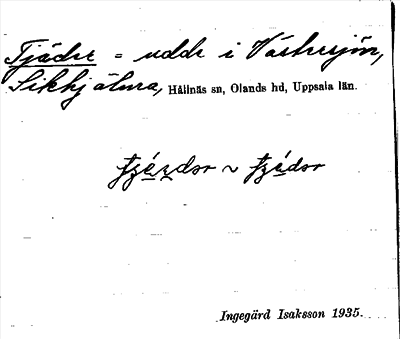 Tjäder = udde i Västersjön,
Sikhjälma, Hållnäs sn, Olands hd, Uppsala län.
~
Ingegärd Isaksson 1935.